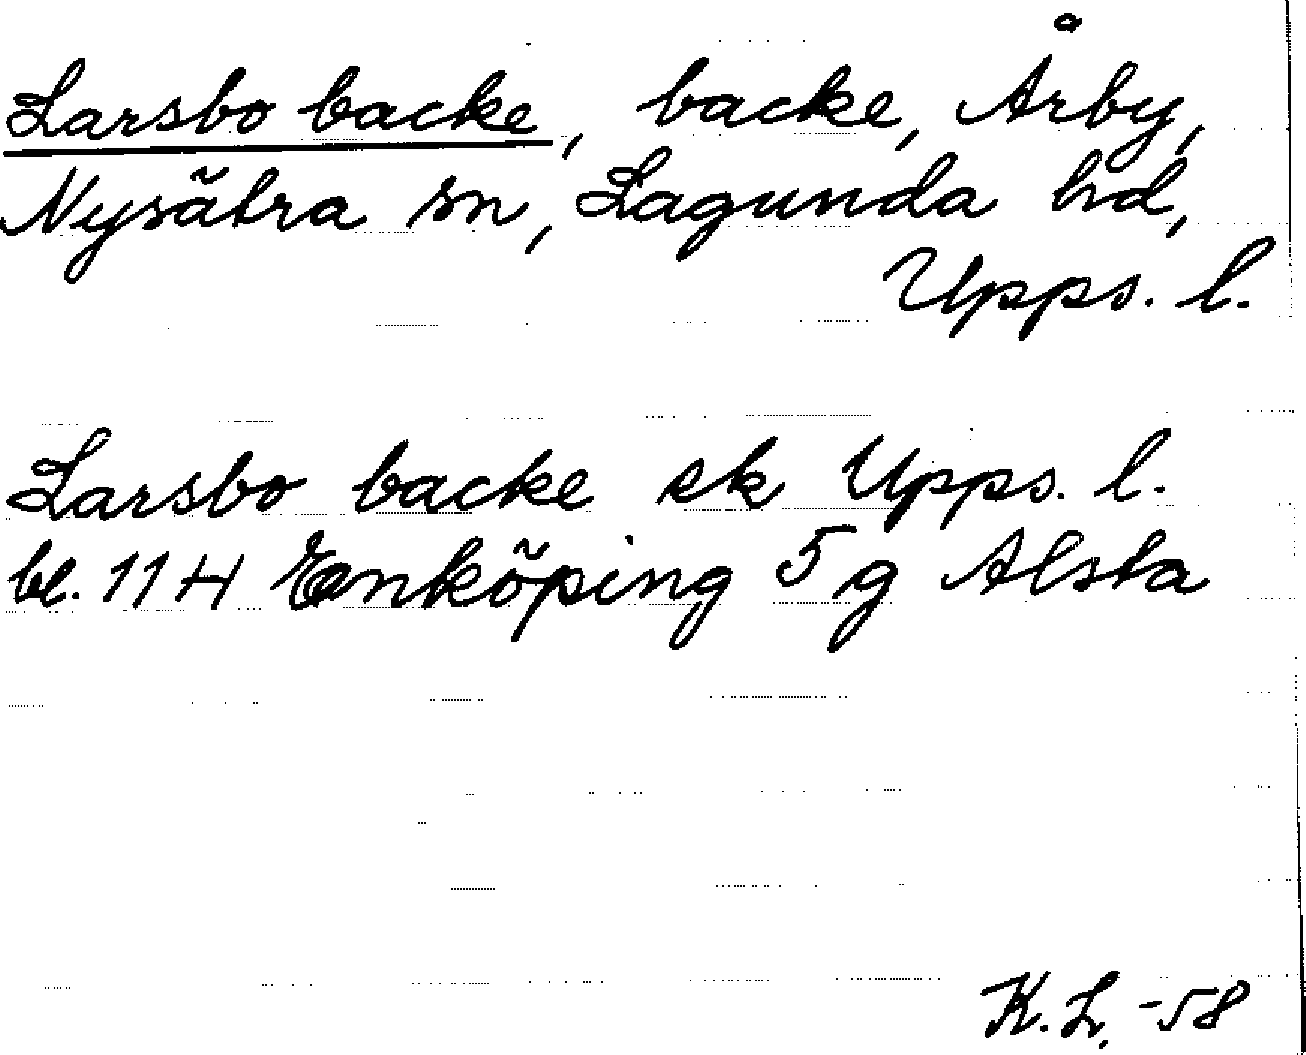 Larsbo backe, backe, Årby,
Nysätra sn, Lagunda hd,
Upps. l.
Larsbo backe ek Upps. l.
bl. 11 H Enköping 5 g Alsta
K. L, -58